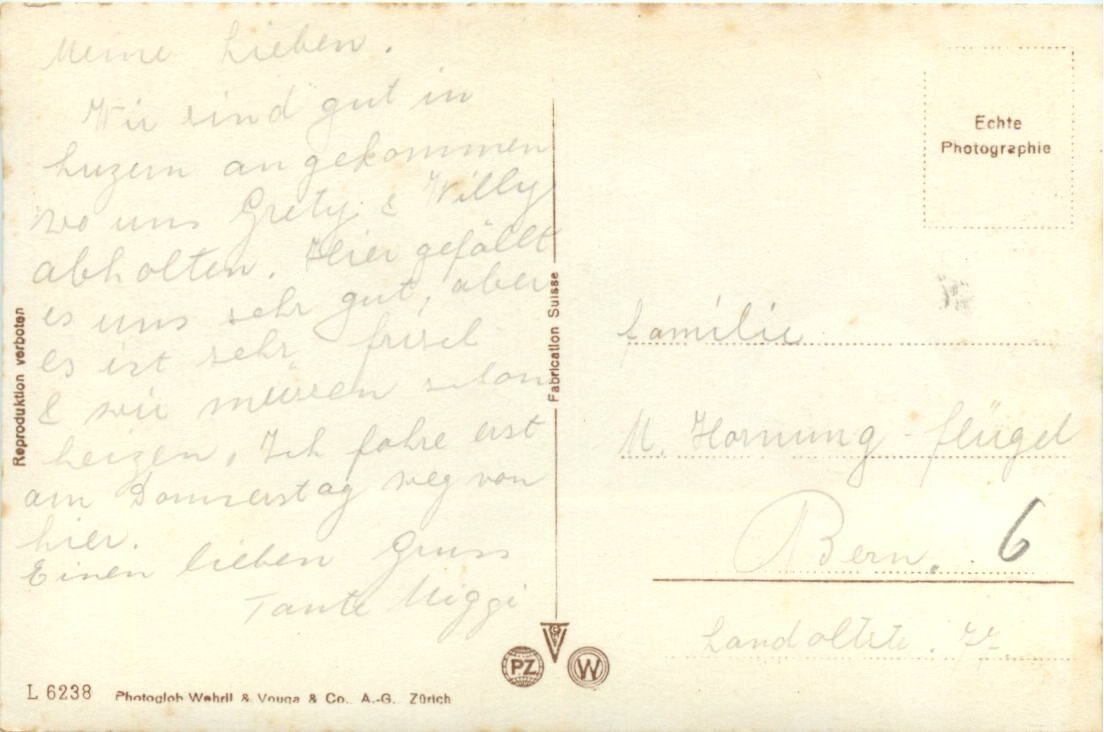 Meine Lieben.
Wir sind gut in
Luzern angekommen
wo uns Grety & Willy
abholten. Hier gefällt
es uns sehr gut, aber
es ist sehr frisch
& wir müssen schon
heizen. Ich fahre erst
am Donnerstag weg von
hier.
Einen lieben Gruss
Tante Miggi
Reproduktion verboten
Fabrication Suisse
Echte
Photographie
Familie
M. Hornung-Flügel
Bern. 6
Landoltstr.
PZ
W
L 6238 Photoglob-Wehrli & Vouga & Co. A.-G. Zürich